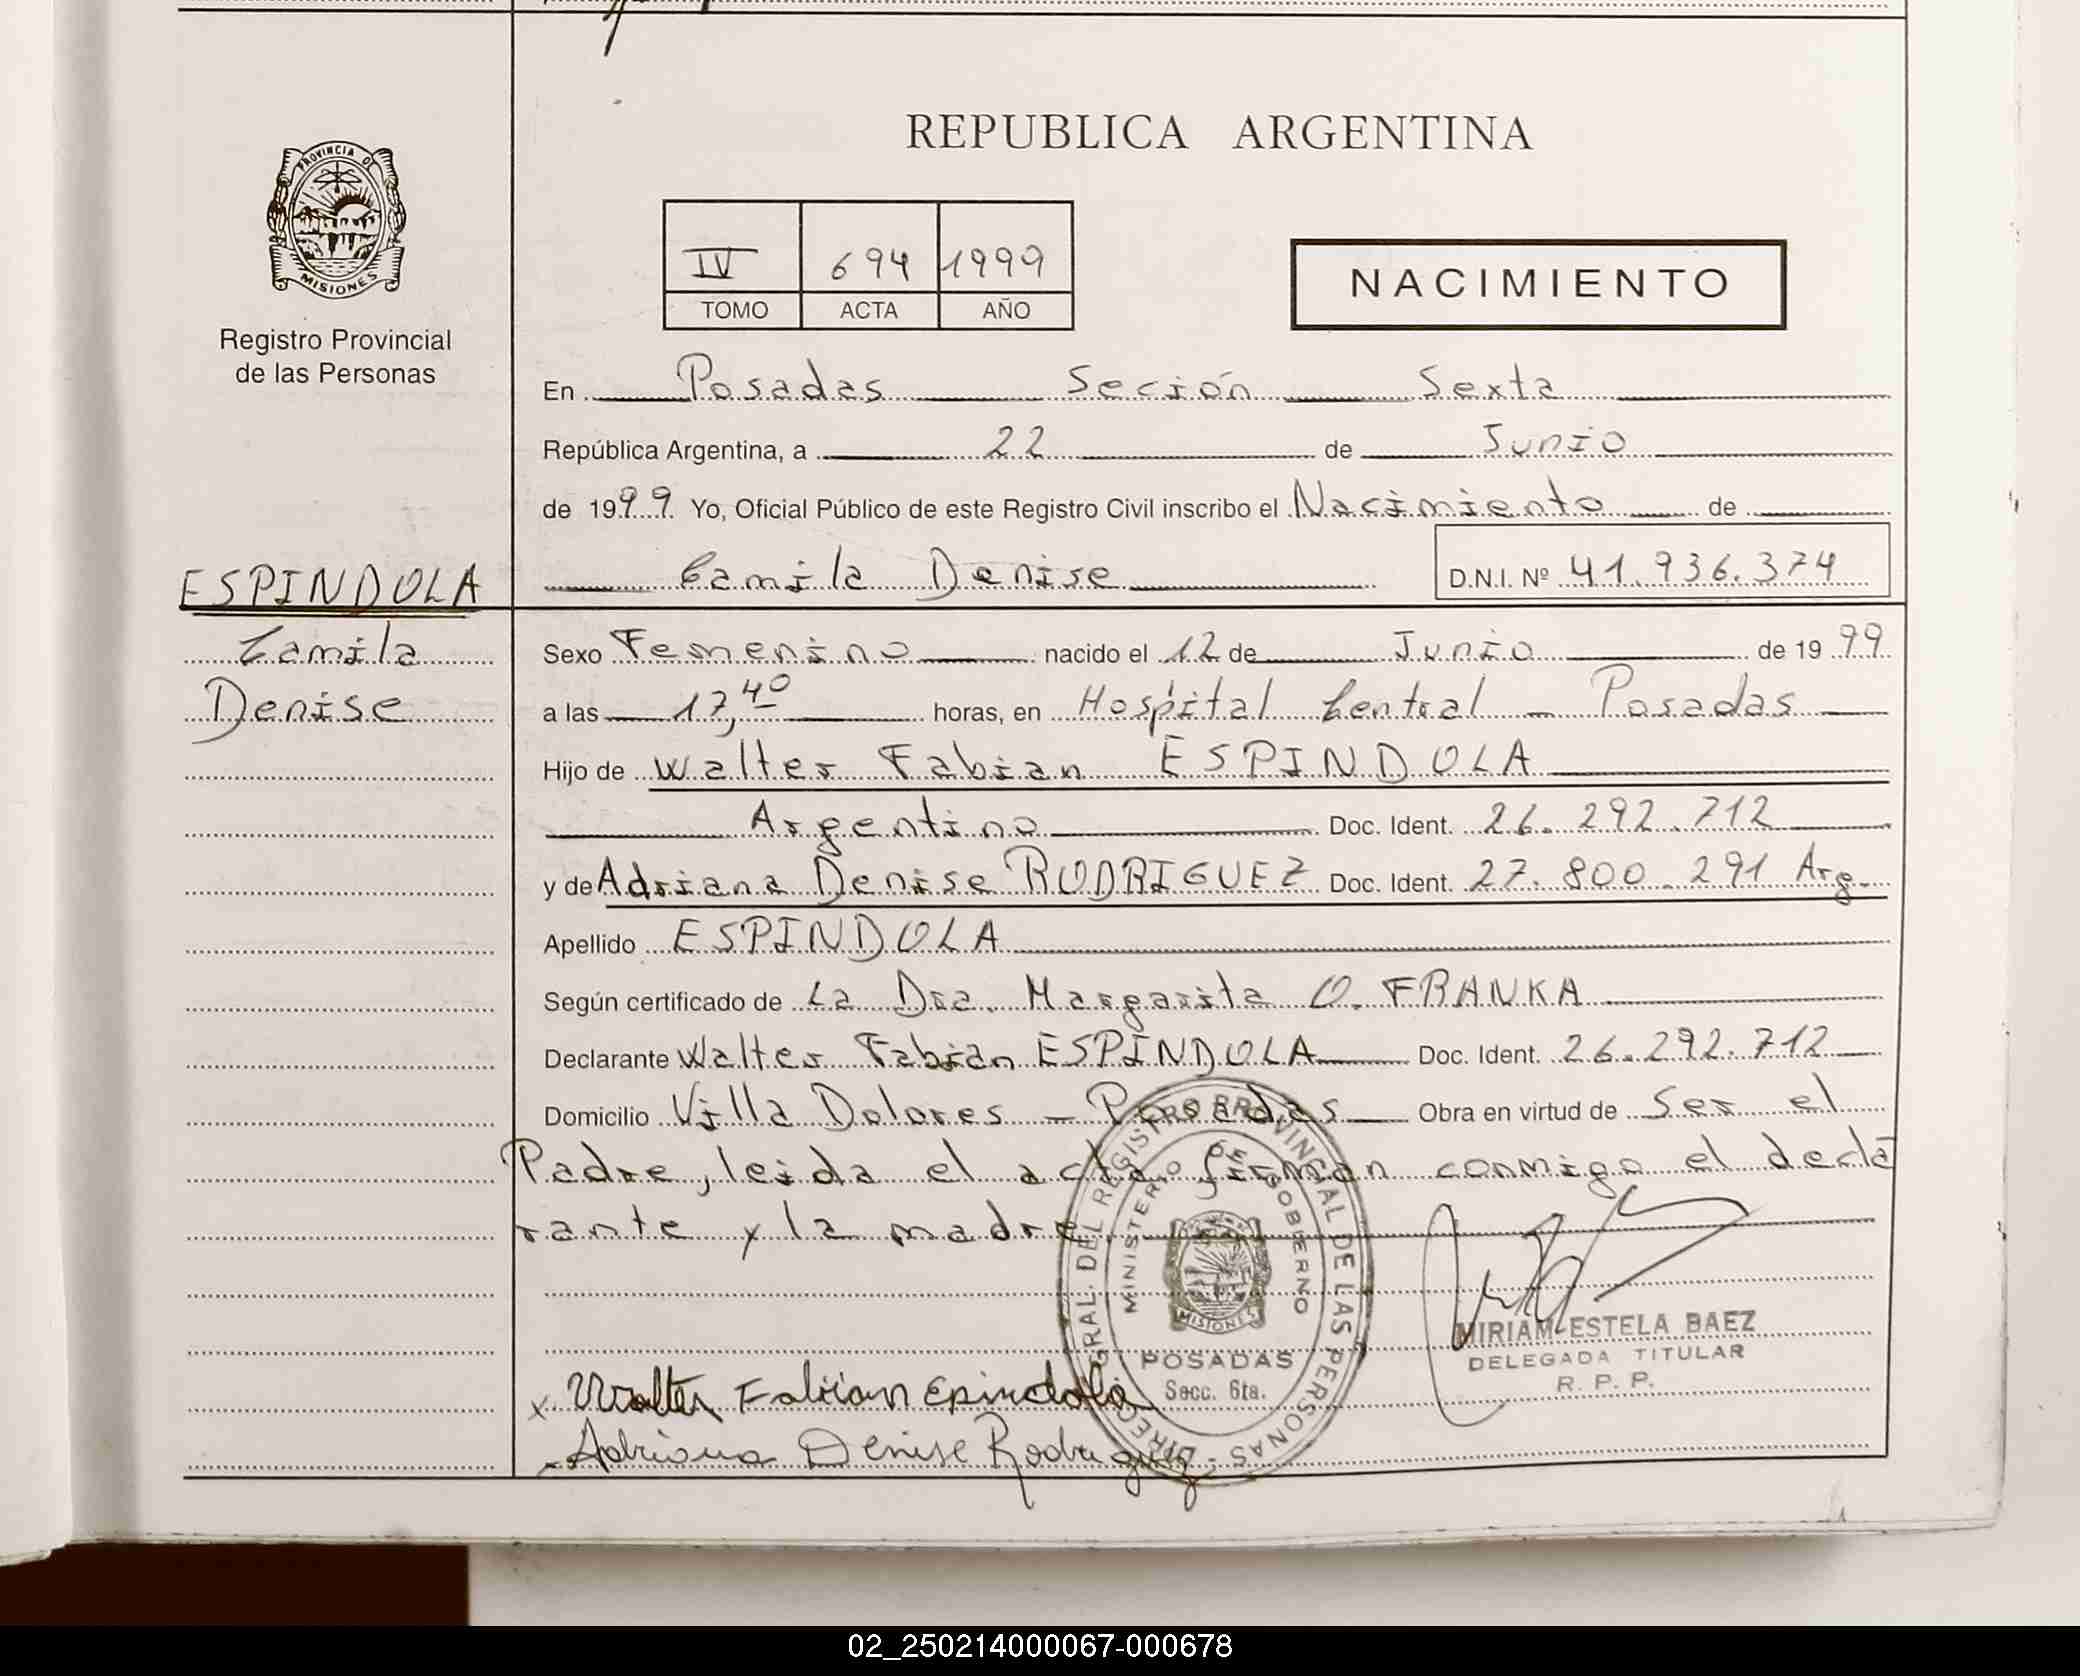 REPUBLICA ARGENTINA
PROVINCIA DE
MISIONES
Registro Provincial
de las Personas
IV 694 1999
TOMO ACTA AÑO
NACIMIENTO
En Posadas Seción Sexta
República Argentina, a 22 de Junio
de 1999 Yo, Oficial Público de este Registro Civil inscribo el Nacimiento de
Camila Denise D.N.I. Nº 41.936.374
ESPINDOLA
Camila
Denise
Sexo Femenino nacido el 12 de Junio de 1999
a las 17,40 horas, en Hospital Central - Posadas
Hijo de Walter Fabian ESPINDOLA
Argentino Doc. Ident. 26.292.712
y de Adriana Denise RODRIGUEZ Doc. Ident. 27.800.291 Arg.
Apellido ESPINDOLA
Según certificado de La Dra. Margarita O. FRANKA
Declarante Walter Fabian ESPINDOLA Doc. Ident. 26.292.712
Domicilio Villa Dolores - Posadas Obra en virtud de Ser el
Padre, leida el acta firman conmigo el decla
rante y la madre.
DIREC. GRAL. DEL REGISTRO PROVINCIAL DE LAS PERSONAS
MINISTERIO DE GOBIERNO
MISIONES
POSADAS
Secc. 6ta.
MIRIAM ESTELA BAEZ
DELEGADA TITULAR
R. P. P.
x Walter Fabian Epindola
Adriana Denise Rodriguez
02_250214000067-000678